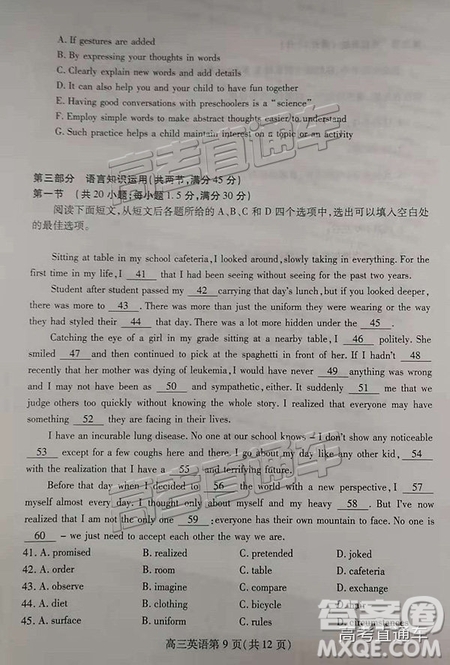 A. If gestures are added
B. By expressing your thoughts in words
C. Clearly explain new words and add details
D. It can also help you and your child to have fun together
E. Having good conversations with preschoolers is a "science"
F. Employ simple words to make abstract thoughts easier to understand
G. Such practice helps a child maintain interest on a topic or an activity
第三部分 语言知识运用(共两节,满分 45 分)
第一节 (共 20 小题;每小题 1. 5 分,满分 30 分)
阅读下面短文,从短文后各题所给的 A、B、C 和 D 四个选项中,选出可以填入空白处
的最佳选项。
Sitting at table in my school cafeteria, I looked around, slowly taking in everything. For the
first time in my life, I 41 that I had been seeing without seeing for the past two years.
Student after student passed my 42 carrying that day's lunch, but if you looked deeper,
there was more to 43 . There was more than just the uniform they were wearing or the way
they had styled their 44 that day. There was a lot more hidden under the 45 .
Catching the eye of a girl in my grade sitting at a nearby table, I 46 politely. She
smiled 47 and then continued to pick at the spaghetti in front of her. If I hadn't 48
recently that her mother was dying of leukemia, I would have never 49 anything was wrong
and I might not have been as 50 and sympathetic, either. It suddenly 51 me that we
judge others too quickly without knowing the whole story. I realized that everyone may have
something 52 they are facing in their lives.
I have an incurable lung disease. No one at our school knows – I don't show any noticeable
53 except for a few coughs here and there. I go about my day like any other kid, 54
with the realization that I have a 55 and terrifying future.
Before that day when I decided to 56 the world with a new perspective, I 57
myself almost every day. I thought only of myself and my heavy 58 . But I've now
realized that I am not the only one 59 ; everyone has their own mountain to face. No one is
60 – we just need to accept each other the way we are.
41. A. promised B. realized C. pretended D. joked
42. A. order B. room C. table D. cafeteria
43. A. observe B. imagine C. compare D. exchange
44. A. diet B. clothing D. hair
45. A. surface B. uniform C. rules D. circumstances
高三英语第 9 页(共 12 页)
高考直通车
答案圈
高考直通车